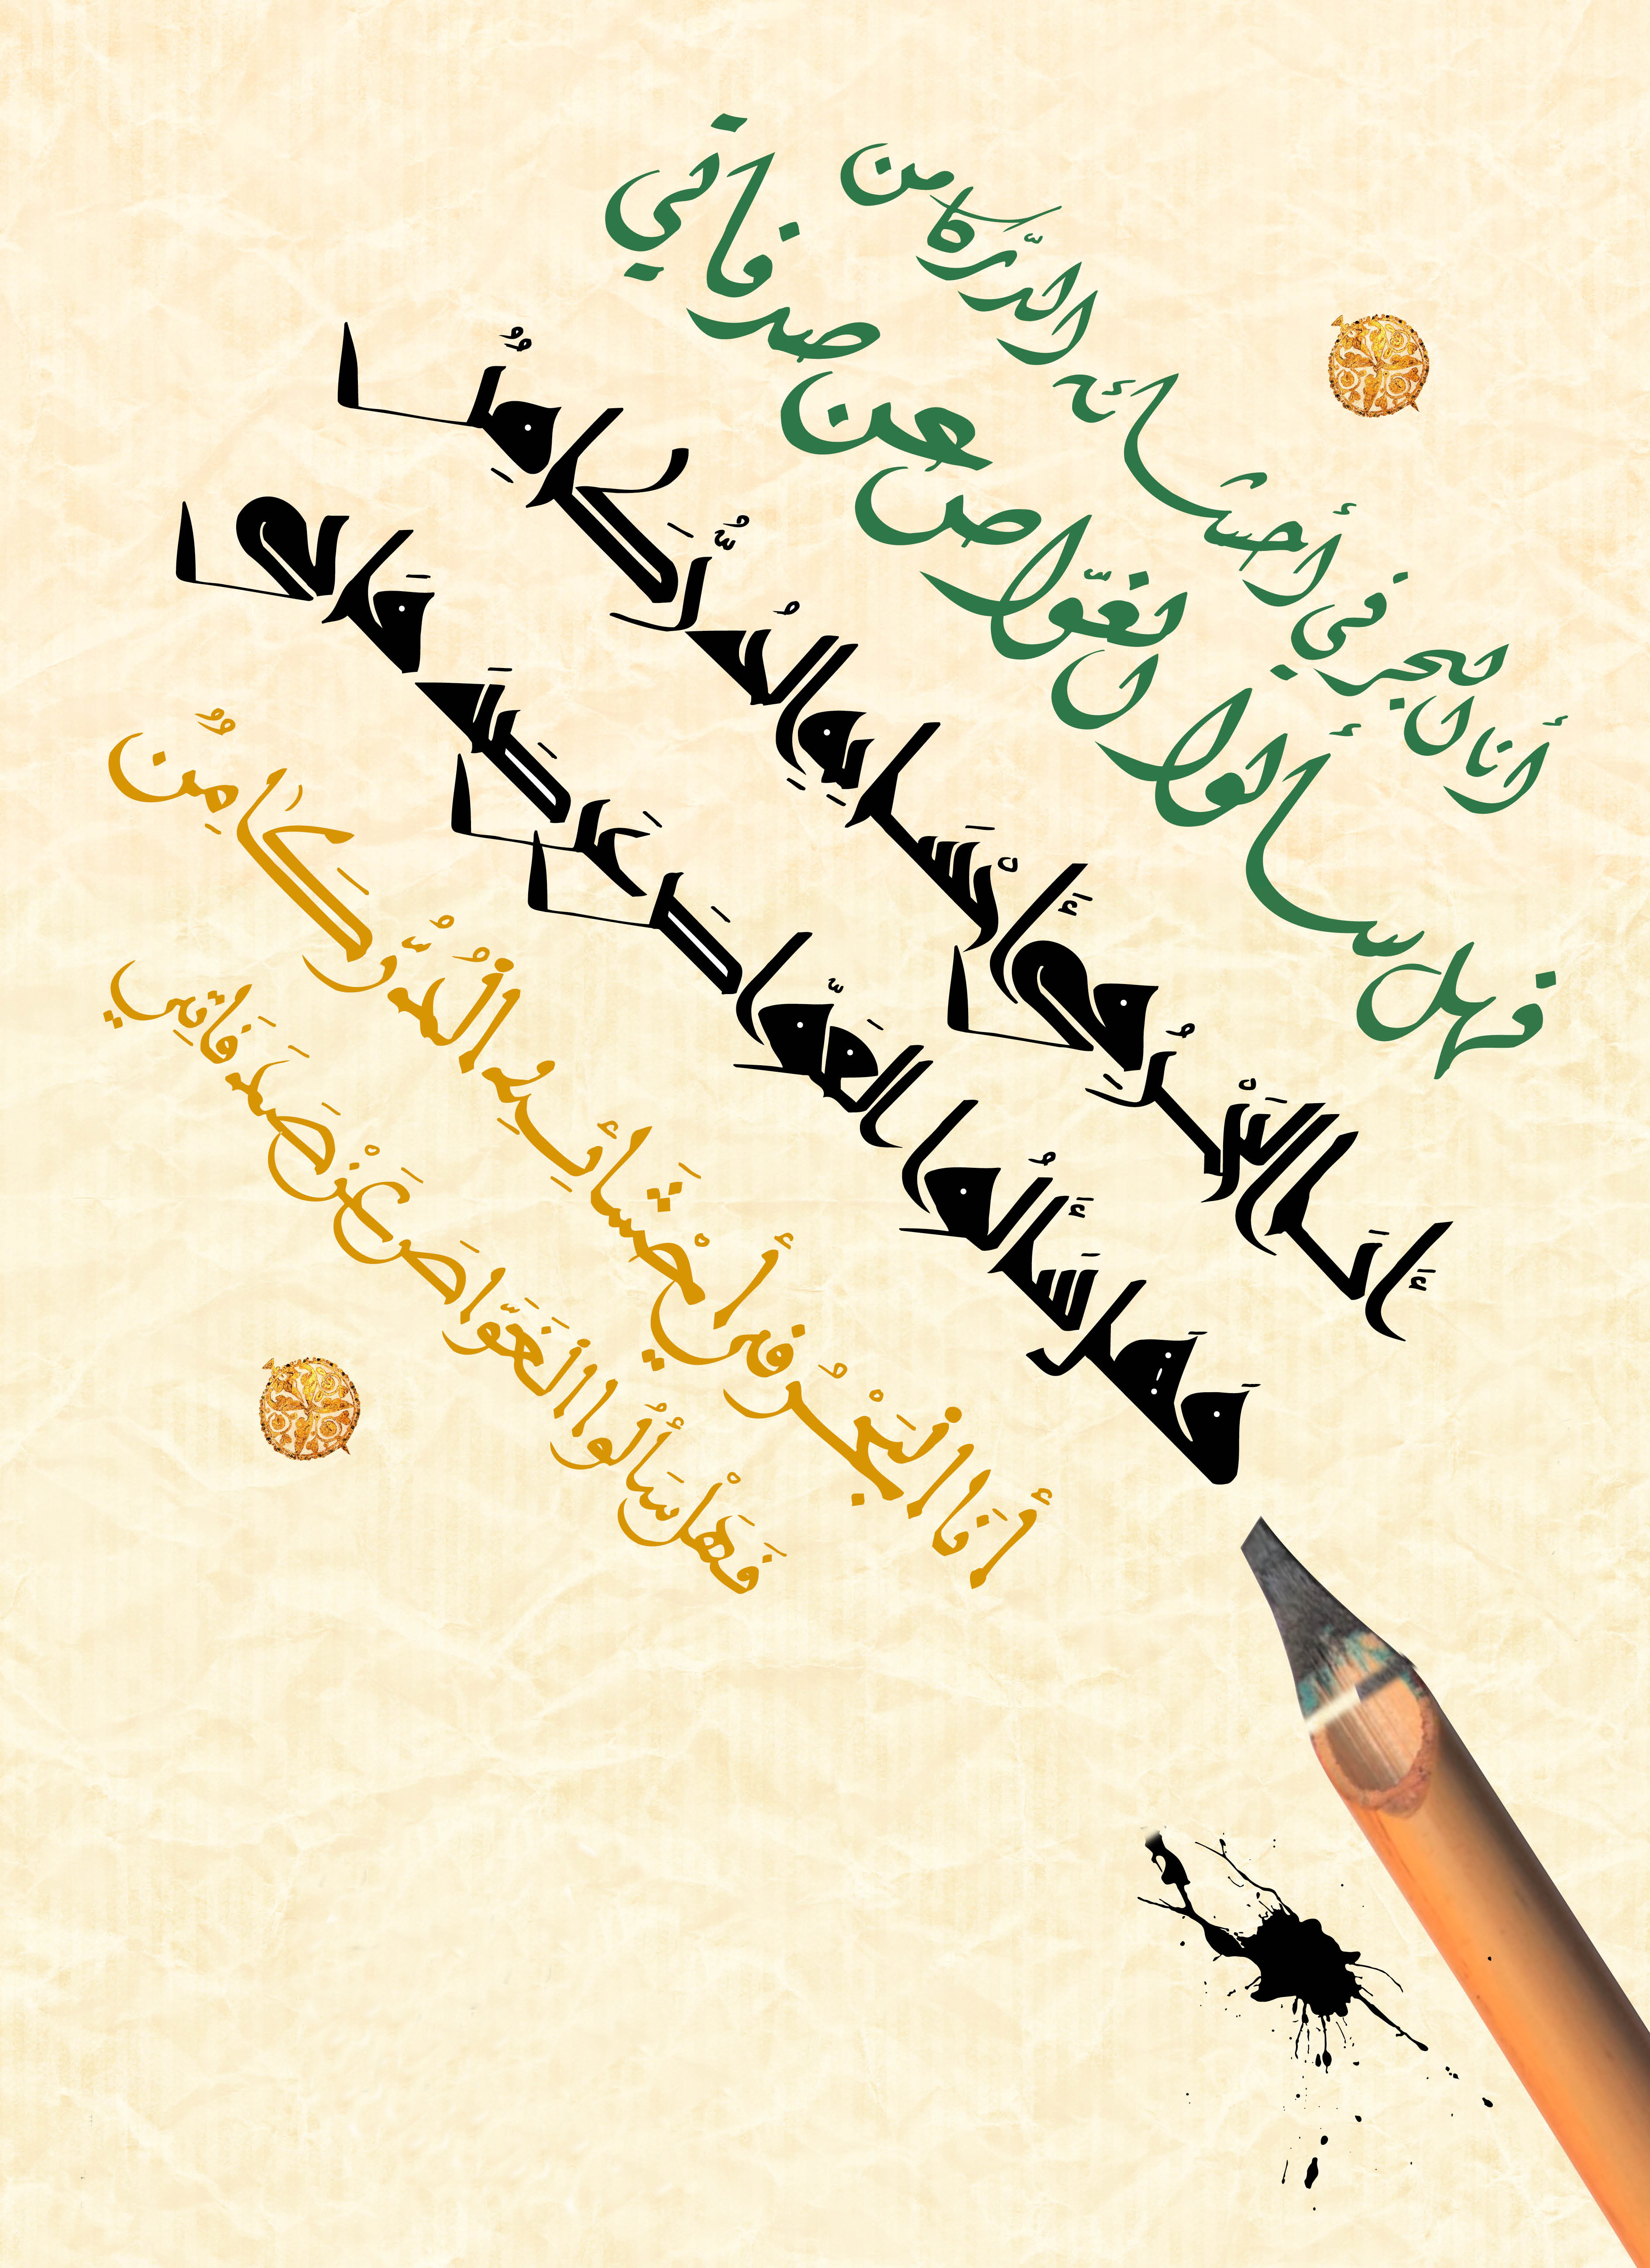 أنا البحر في أحشائه الدّر كامن
فهل سألوا الغوّاص عن صدفاتي
أَنَا الْبَحْرُ فِي أَحْشَائِهِ الدُّرُّ كَامِنٌ
فَهَلْ سَأَلُوا الغَوَّاصَ عَنْ صَدَفَاتِي
أَنَا الْبَحْرُ فِي أَحْشَائِهِ الْدُّرُّ كَامِنٌ
فَهَلْ سَأَلُوا الْغَوَّاصَ عَنْ صَدَفَاتِي